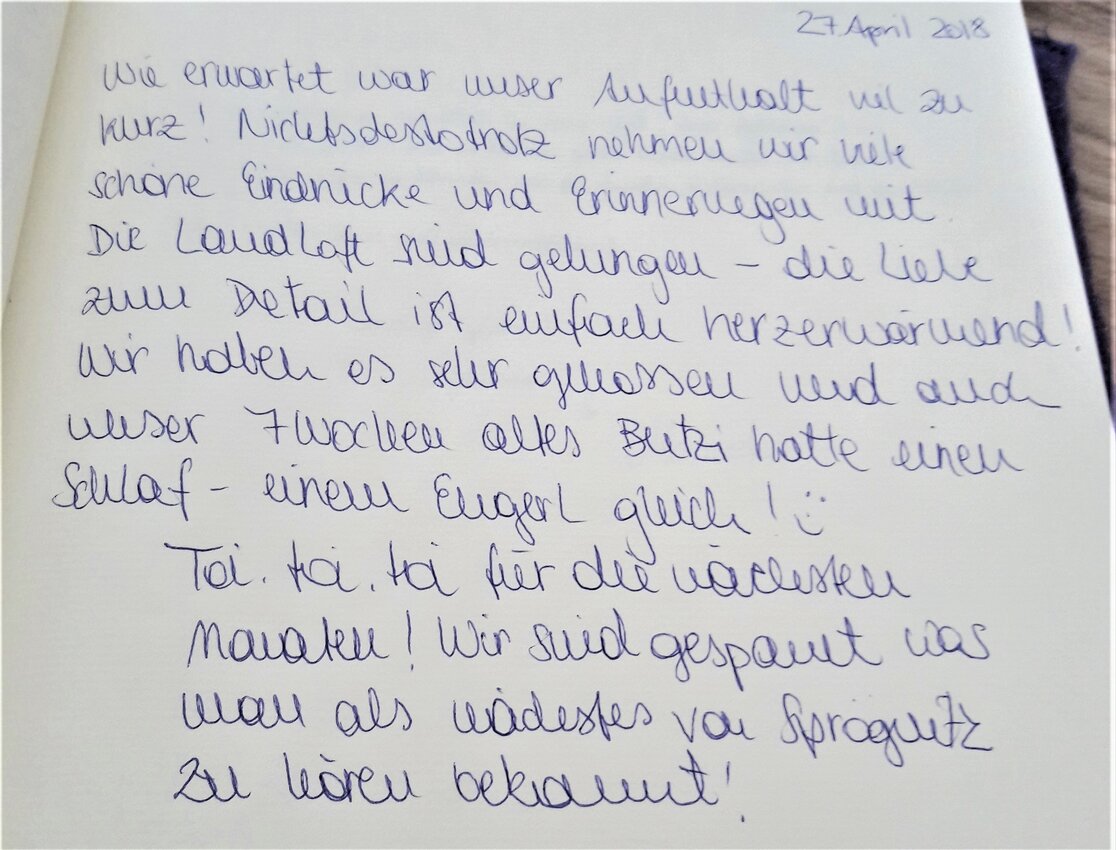 27 April 2018
Wie erwartet war unser Aufenthalt viel zu
kurz! Nichtsdestotrotz nehmen wir viele
schöne Eindrücke und Erinnerungen mit.
Die LandLoft sind gelungen – die Liebe
zum Detail ist einfach herzerwärmend!
Wir haben es sehr genossen und auch
unser 7 Wochen altes Butzi hatte einen
Schlaf – einem Engerl gleich! :)
Toi. toi. toi für die nächsten
Monaten! Wir sind gespannt was
man als nächstes von Sprögnitz
zu hören bekommt!